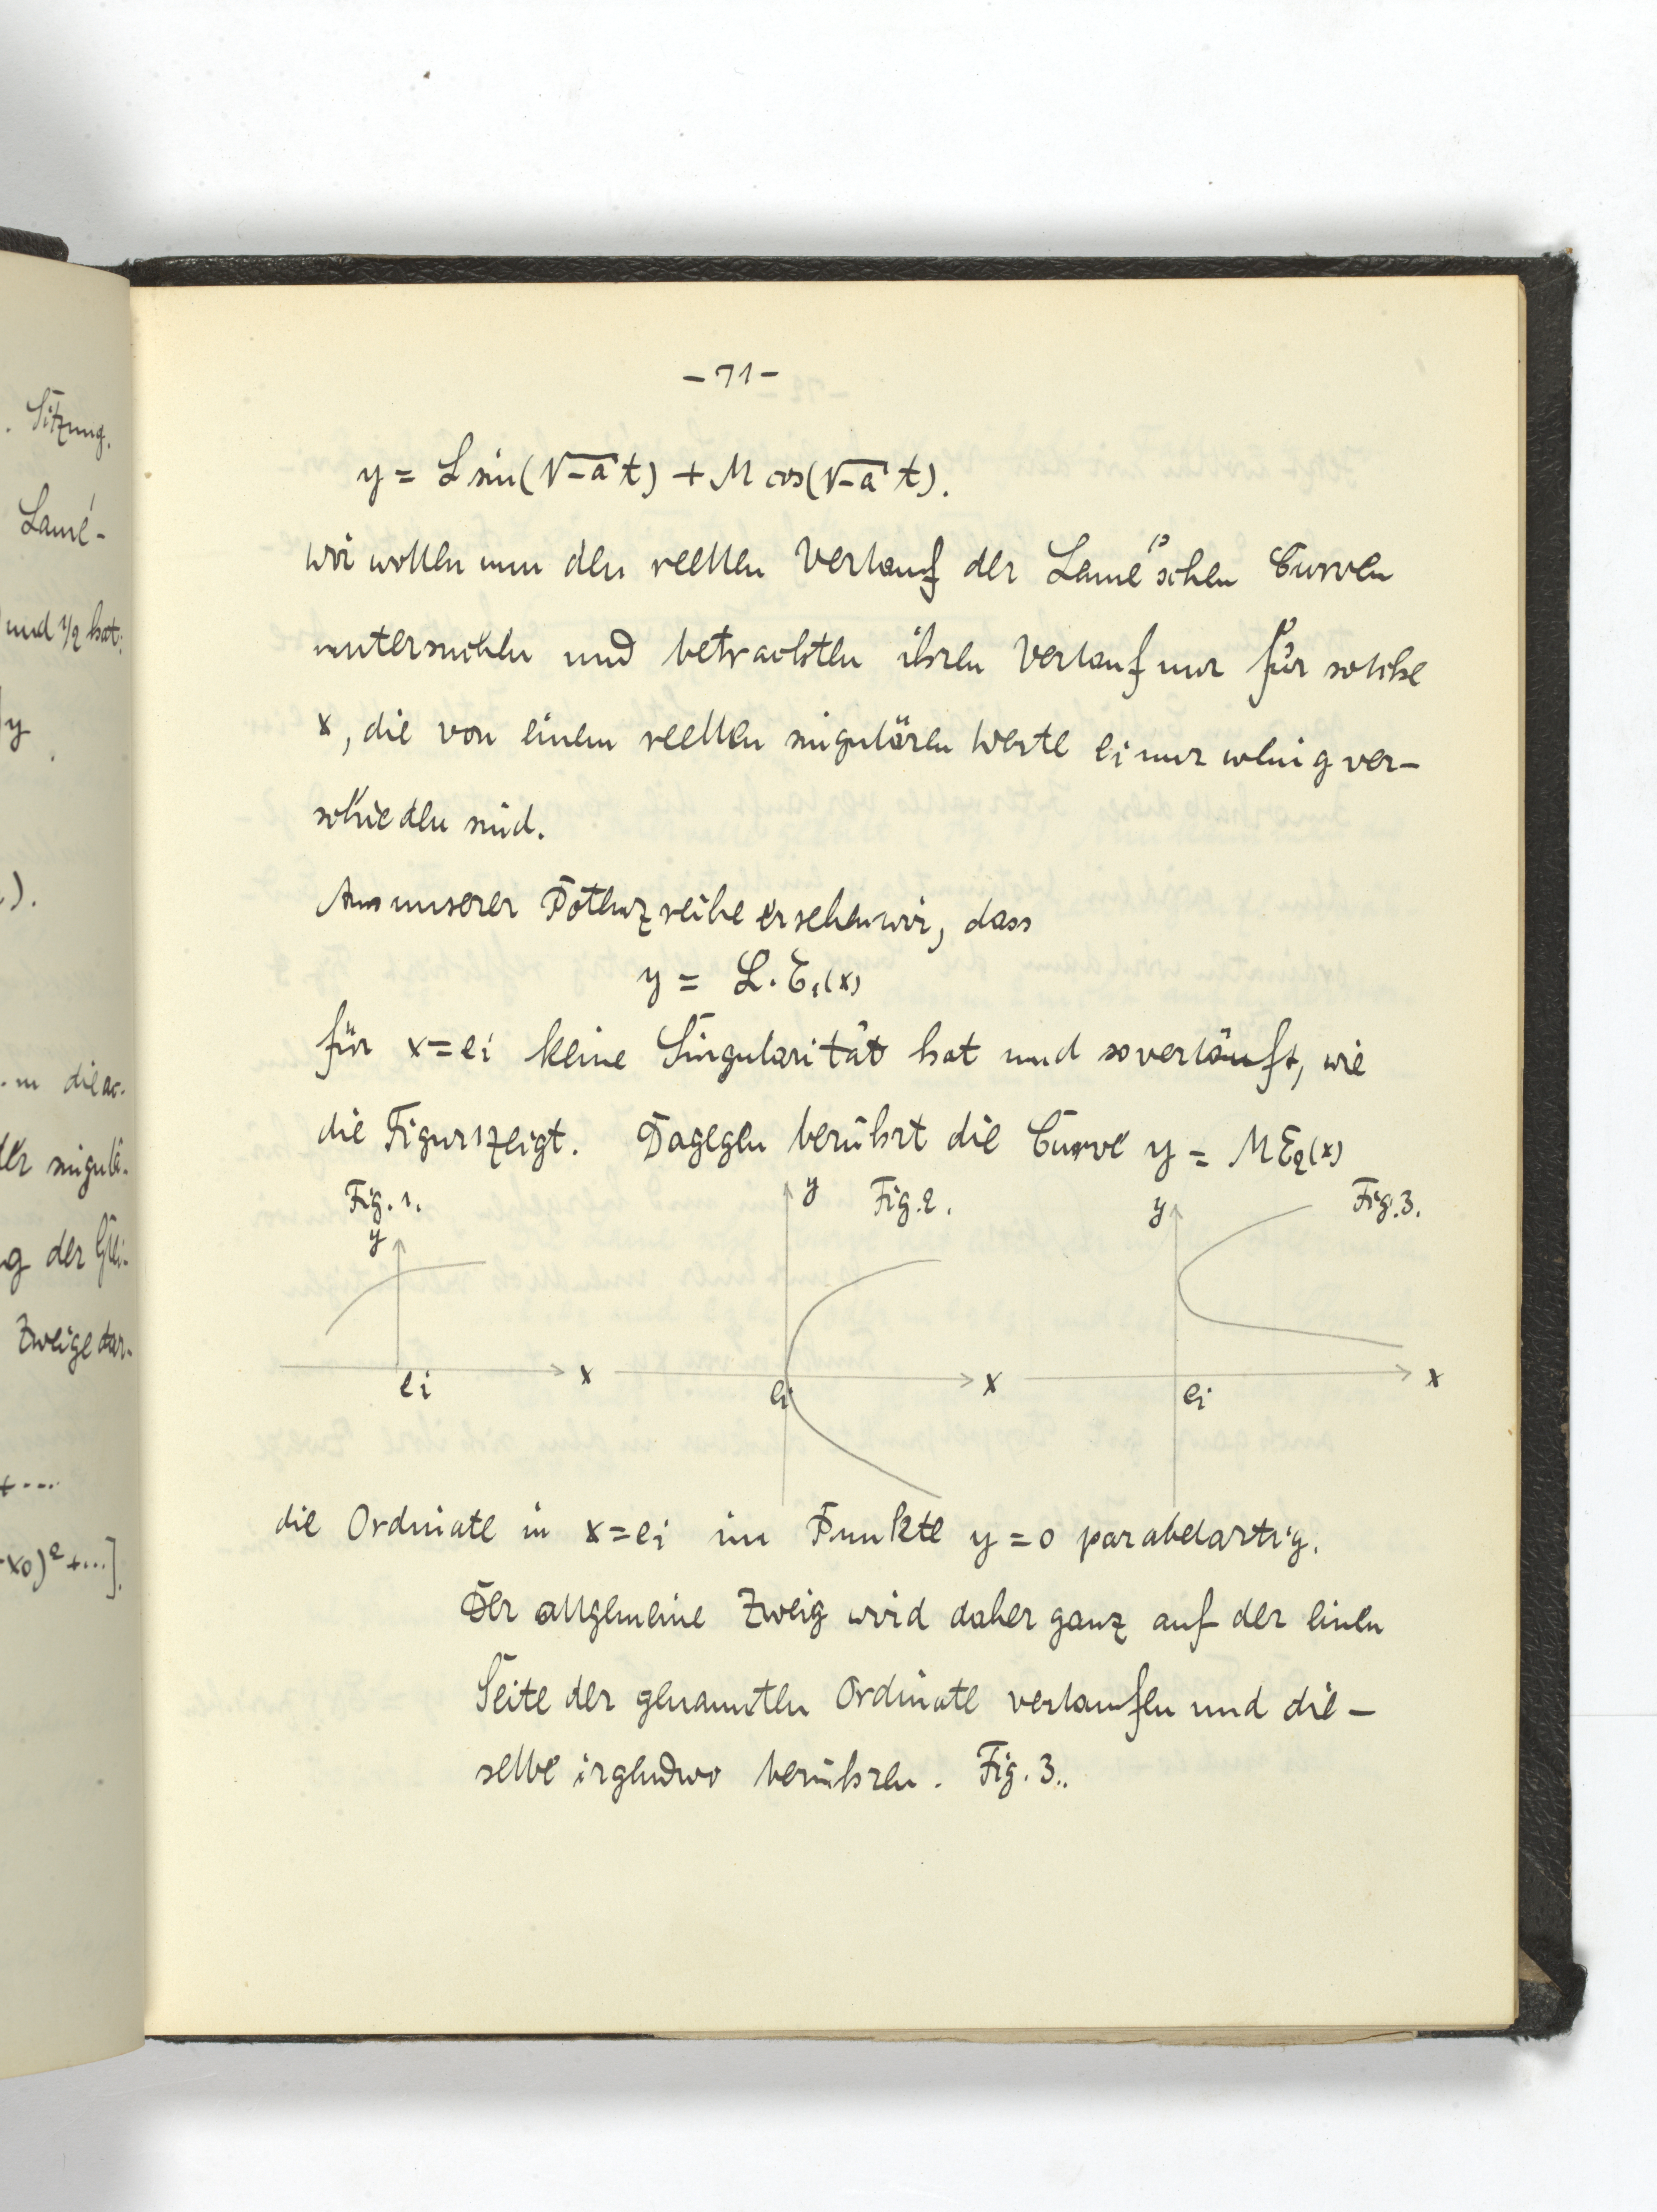 . Sitzung.
Lamé-
und 1/2 hat.
y
).
der singulä-
g der
Zweige dar-
+ ...
x0)² + ...].
- 71 -
y = L sin(√-a t) + M cos(√-a t).
Wir wollen nun den reellen Verlauf der Lamé'schen Curven
untersuchen und betrachten ihren Verlauf nur für solche
x, die von einem reellen singulären Werte ei nur wenig ver-
schieden sind.
Aus unserer Potenzreihe ersehen wir, dass
y = L. E1(x)
für x = ei keine Singularität hat und so verläuft, wie
die Figur 1 zeigt. Dagegen berührt die Curve y = M E2(x)
Fig. 1.
y
x
ei
y
Fig. 2.
x
ei
y
Fig. 3.
x
ei
die Ordinate in x = ei im Punkte y = 0 parabelartig.
Der allgemeine Zweig wird daher ganz auf der einen
Seite der genannten Ordinate verlaufen und die-
selbe irgendwo berühren. Fig. 3..